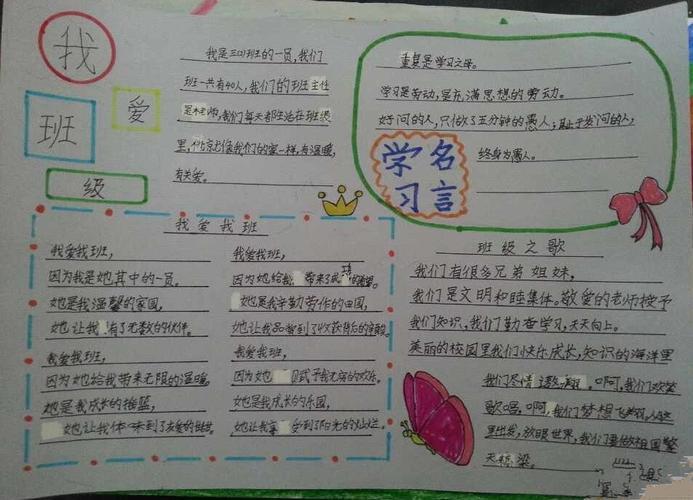 我
爱
班
级
我是三(1)班的一员,我们
班一共有40人,我们的班主任
是 老师,我们每天都生活在班级
里,他就像我们的家一样,有温暖,
有关爱。
重复是学习之母。
学习是劳动,是充满思想的劳动。
好问的人,只做了五分钟的愚人;耻于发问的人,
终身为愚人。
学习
名言
我爱我班
我爱我班,
因为我是她其中的一员。
她是我温馨的家园,
她让我有了无数的伙伴。
我爱我班,
因为她给我带来无限的温暖。
她是我成长的摇篮,
她让我体味到了友爱的
我爱我班,
因为她给我带来了 的
她是我辛勤劳作的田园,
她让我品尝到了 收获后的
我爱我班,
因为她 赐予我无穷的欢乐。
她是我成长的乐园,
她让我 受到了阳光的灿烂。
班级之歌
我们有很多兄弟姐妹,
我们是文明和睦集体。敬爱的老师授予
我们知识,我们勤奋学习,天天向上。
美丽的校园里我们快乐成长,知识的海洋里
我们尽情遨游。啊,我们欢笑
歌唱,啊,我们梦想飞翔,从这
里出发,放眼世界,我们要做祖国擎
天栋梁。